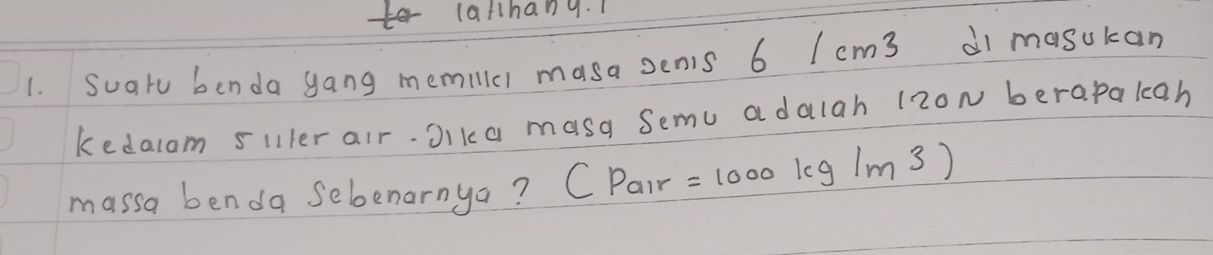 latihan 4.1
1. Suatu benda yang memiliki masa jenis 6 / cm3 di masukan
kedalam 5 liter air. Jika masa semu adalah 120N berapakah
massa benda sebenarnya? (Pair = 1000 kg/m3)